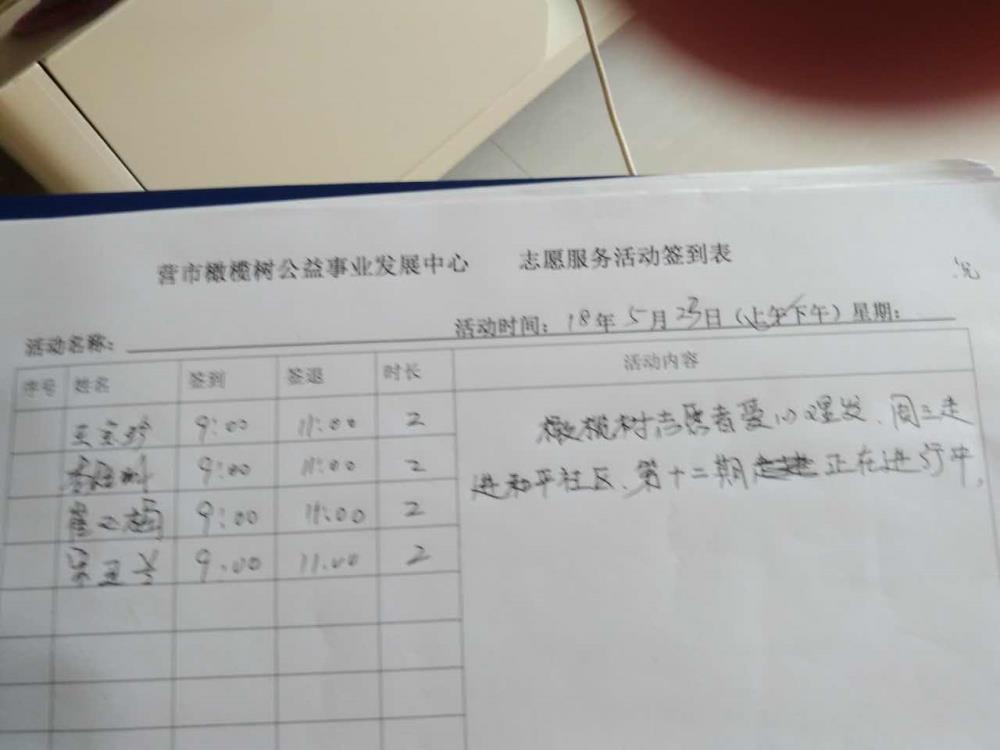 营市橄榄树公益事业发展中心 志愿服务活动签到表
活动名称: 活动时间: 18年5月23日 (上午下午) 星期:
序号 姓名 签到 签退 时长 活动内容
9:00 11:00 2
9:00 11:00 2
9:00 11:00 2
9.00 11.00 2
橄榄树志愿者爱心理发、周三走
进和平社区、第十二期 正在进行中,